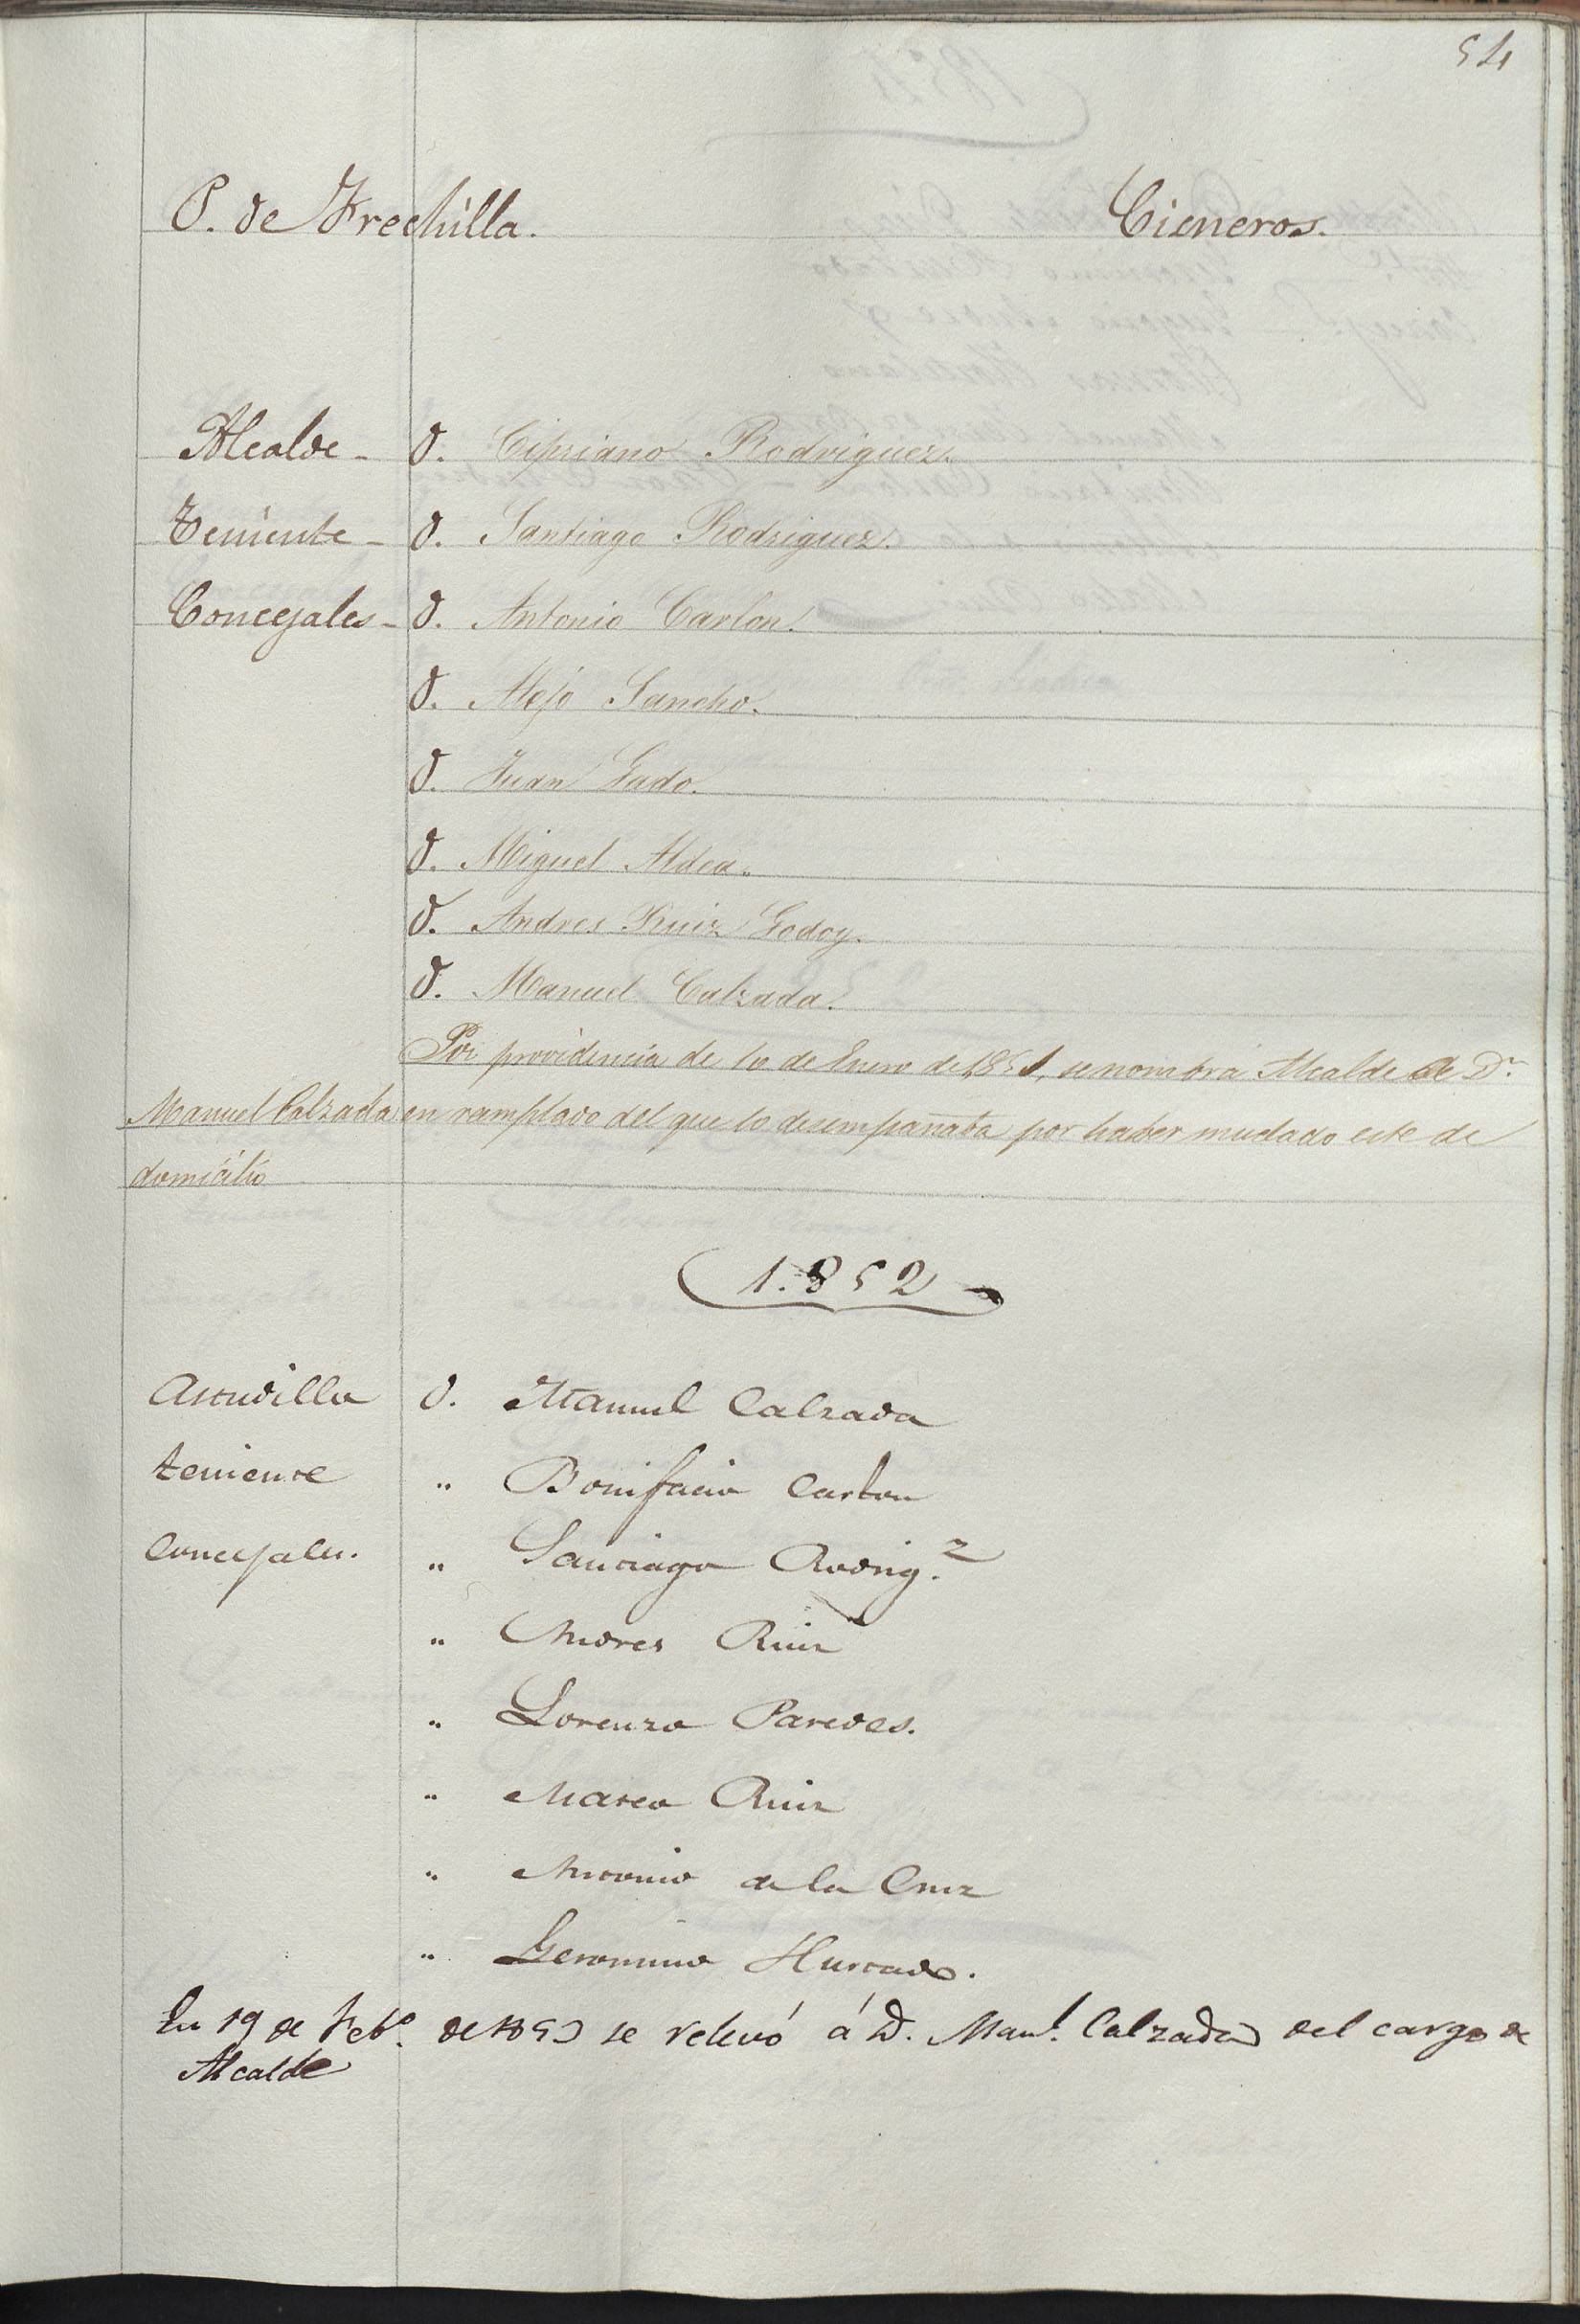 54
P. de Frechilla. Cisneros.
Alcalde - D. Cipriano Rodriguez.
Teniente - D. Santiago Rodriguez.
Concejales - D. Antonio Carlon.
D. Alejo Sancho.
D. Juan Gado.
D. Miguel Aldea.
D. Andres Ruiz Godoy.
D. Manuel Calzada.
Por providencia de 10 de Enero de 1851, se nombra Alcalde á Dn
Manuel Calzada en remplazo del que lo desempañaba por haber mudado este de
domicilio
1.852
Astudillo D. Manuel Calzada
teniente " Bonifacio Carlon
Concejales. " Santiago Rodrig.z
" Andres Ruiz
" Lorenzo Paredes.
" Mateo Ruiz
" Antonio de la Cruz
" Geronimo Hurtado.
En 19 de Feb.o de 1853 se relevó á D. Man.l Calzada del cargo de
Alcalde